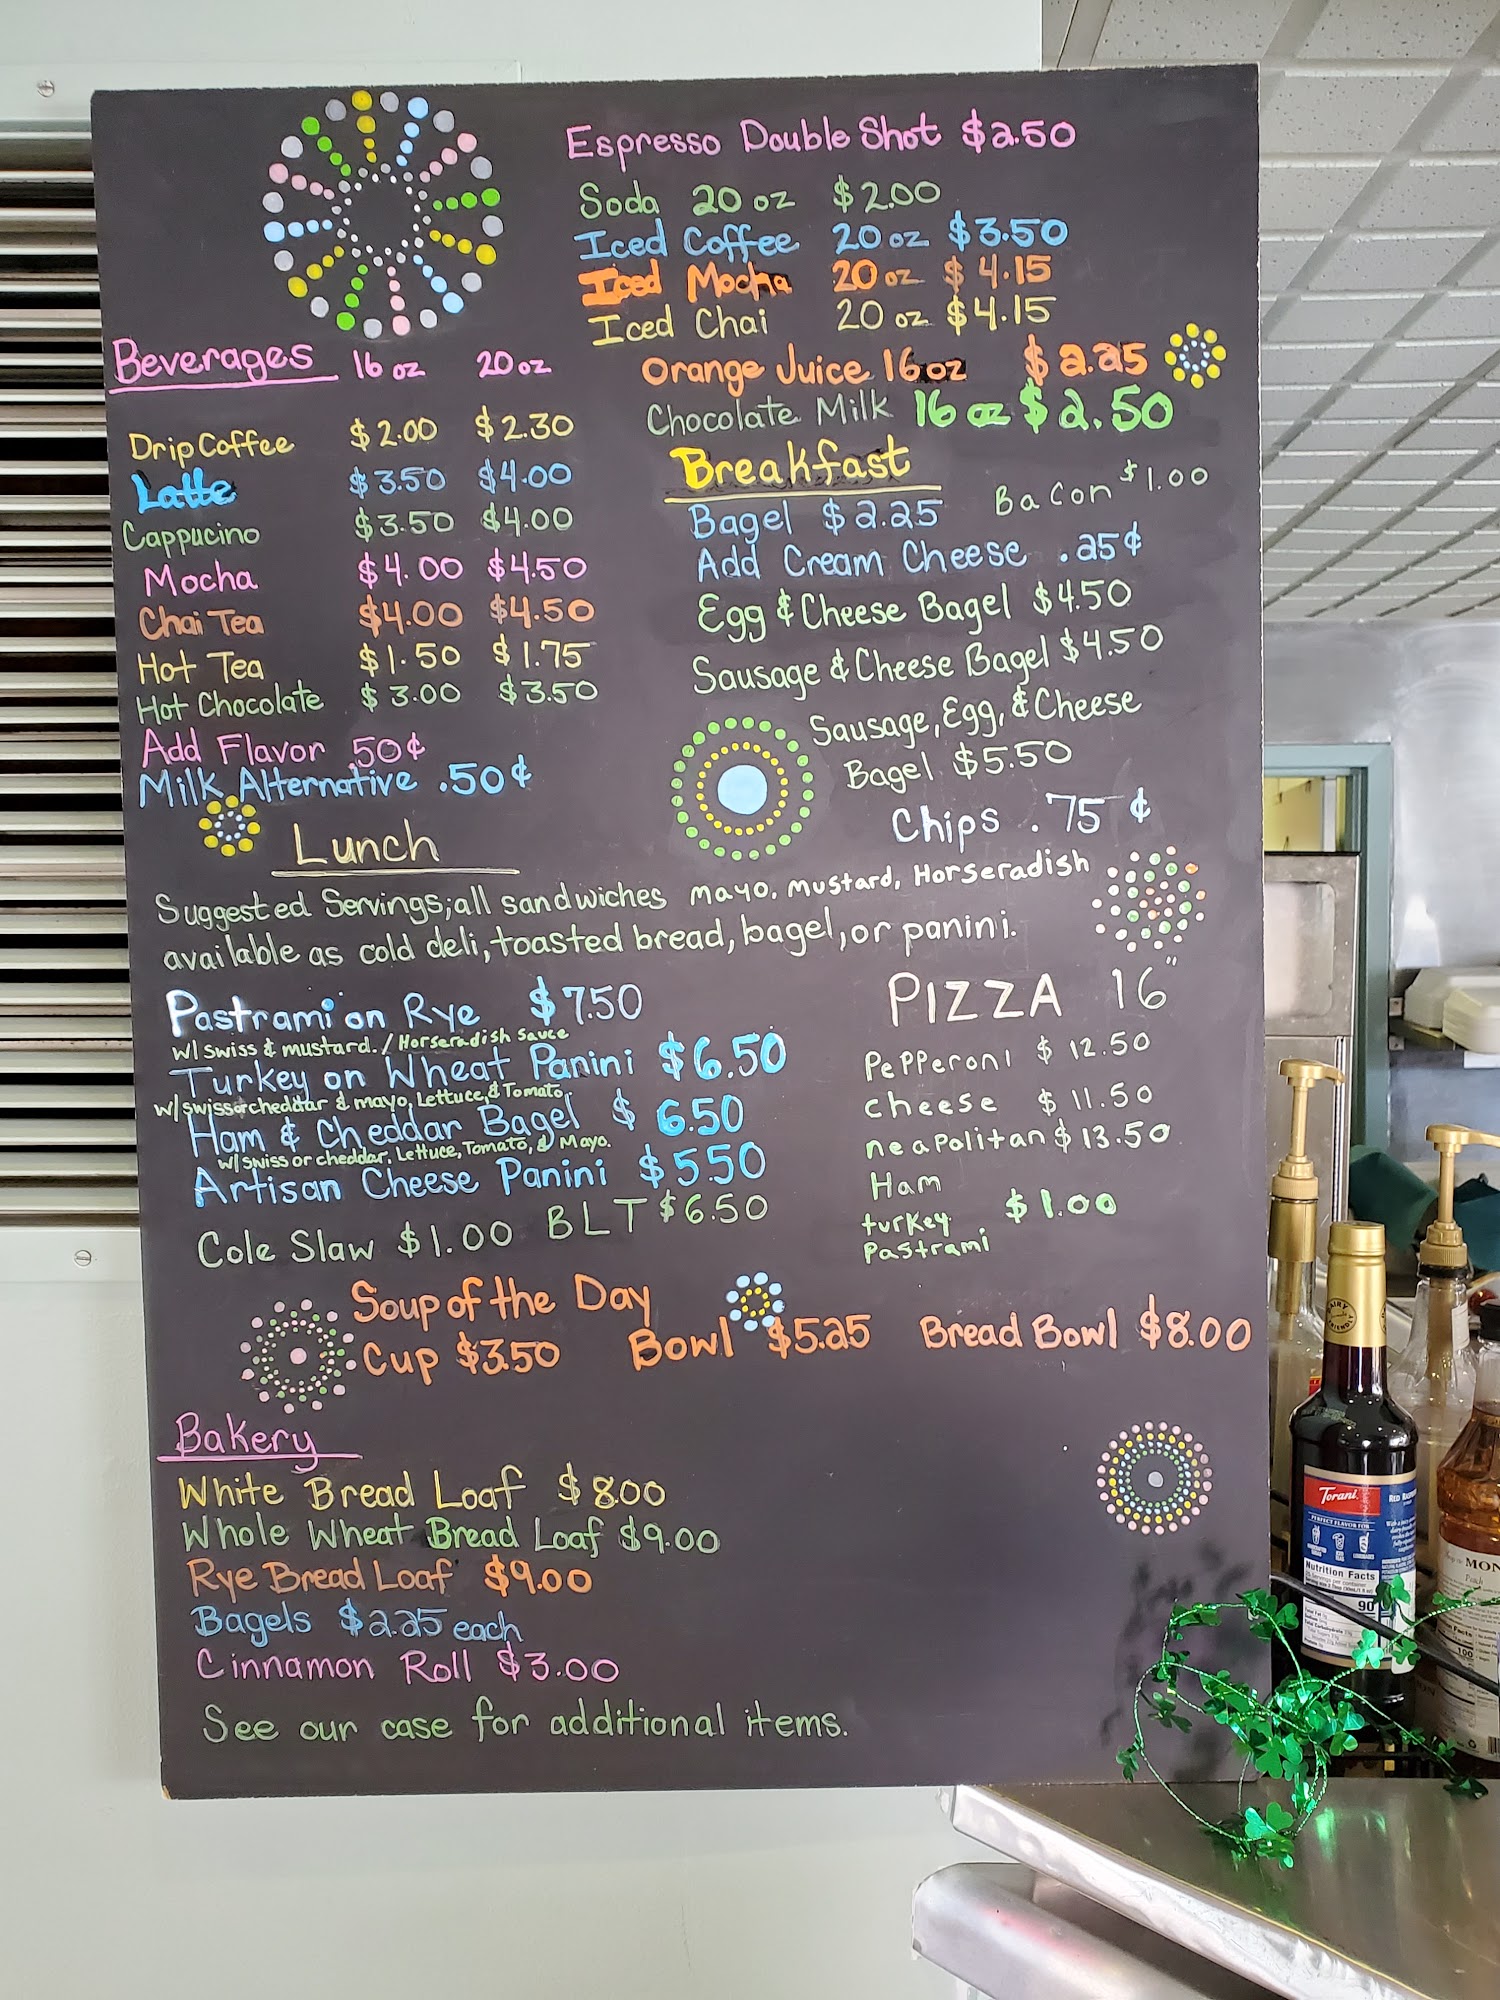 Espresso Double Shot $2.50
Soda 20 oz $2.00
Iced Coffee 20 oz $3.50
Iced Mocha 20 oz $4.15
Iced Chai 20 oz $4.15
Orange Juice 16 oz $2.25
Chocolate Milk 16 oz $2.50
Beverages 16 oz 20 oz
Drip Coffee $2.00 $2.30
Latte $3.50 $4.00
Cappucino $3.50 $4.00
Mocha $4.00 $4.50
Chai Tea $4.00 $4.50
Hot Tea $1.50 $1.75
Hot Chocolate $3.00 $3.50
Add Flavor .50¢
Milk Alternative .50¢
Breakfast
Bagel $2.25 Bacon $1.00
Add Cream Cheese .25¢
Egg & Cheese Bagel $4.50
Sausage & Cheese Bagel $4.50
Sausage, Egg, & Cheese
Bagel $5.50
Chips .75¢
Lunch
Suggested Servings; all sandwiches mayo, mustard, Horseradish
available as cold deli, toasted bread, bagel, or panini.
Pastrami on Rye $7.50
w/ swiss & mustard. / Horseradish Sauce
Turkey on Wheat Panini $6.50
w/ swiss or cheddar & mayo, Lettuce, & Tomato.
Ham & Cheddar Bagel $6.50
w/ swiss or cheddar, Lettuce, Tomato, & Mayo.
Artisan Cheese Panini $5.50
Cole Slaw $1.00 BLT $6.50
PIZZA 16"
Pepperoni $12.50
cheese $11.50
neapolitan $13.50
Ham
turkey $1.00
Pastrami
Soup of the Day
Cup $3.50 Bowl $5.25 Bread Bowl $8.00
Bakery
White Bread Loaf $8.00
Whole Wheat Bread Loaf $9.00
Rye Bread Loaf $9.00
Bagels $2.25 each
Cinnamon Roll $3.00
See our case for additional items.
Torani
PERFECT FLAVOR FOR
Nutrition Facts
90
MON
100